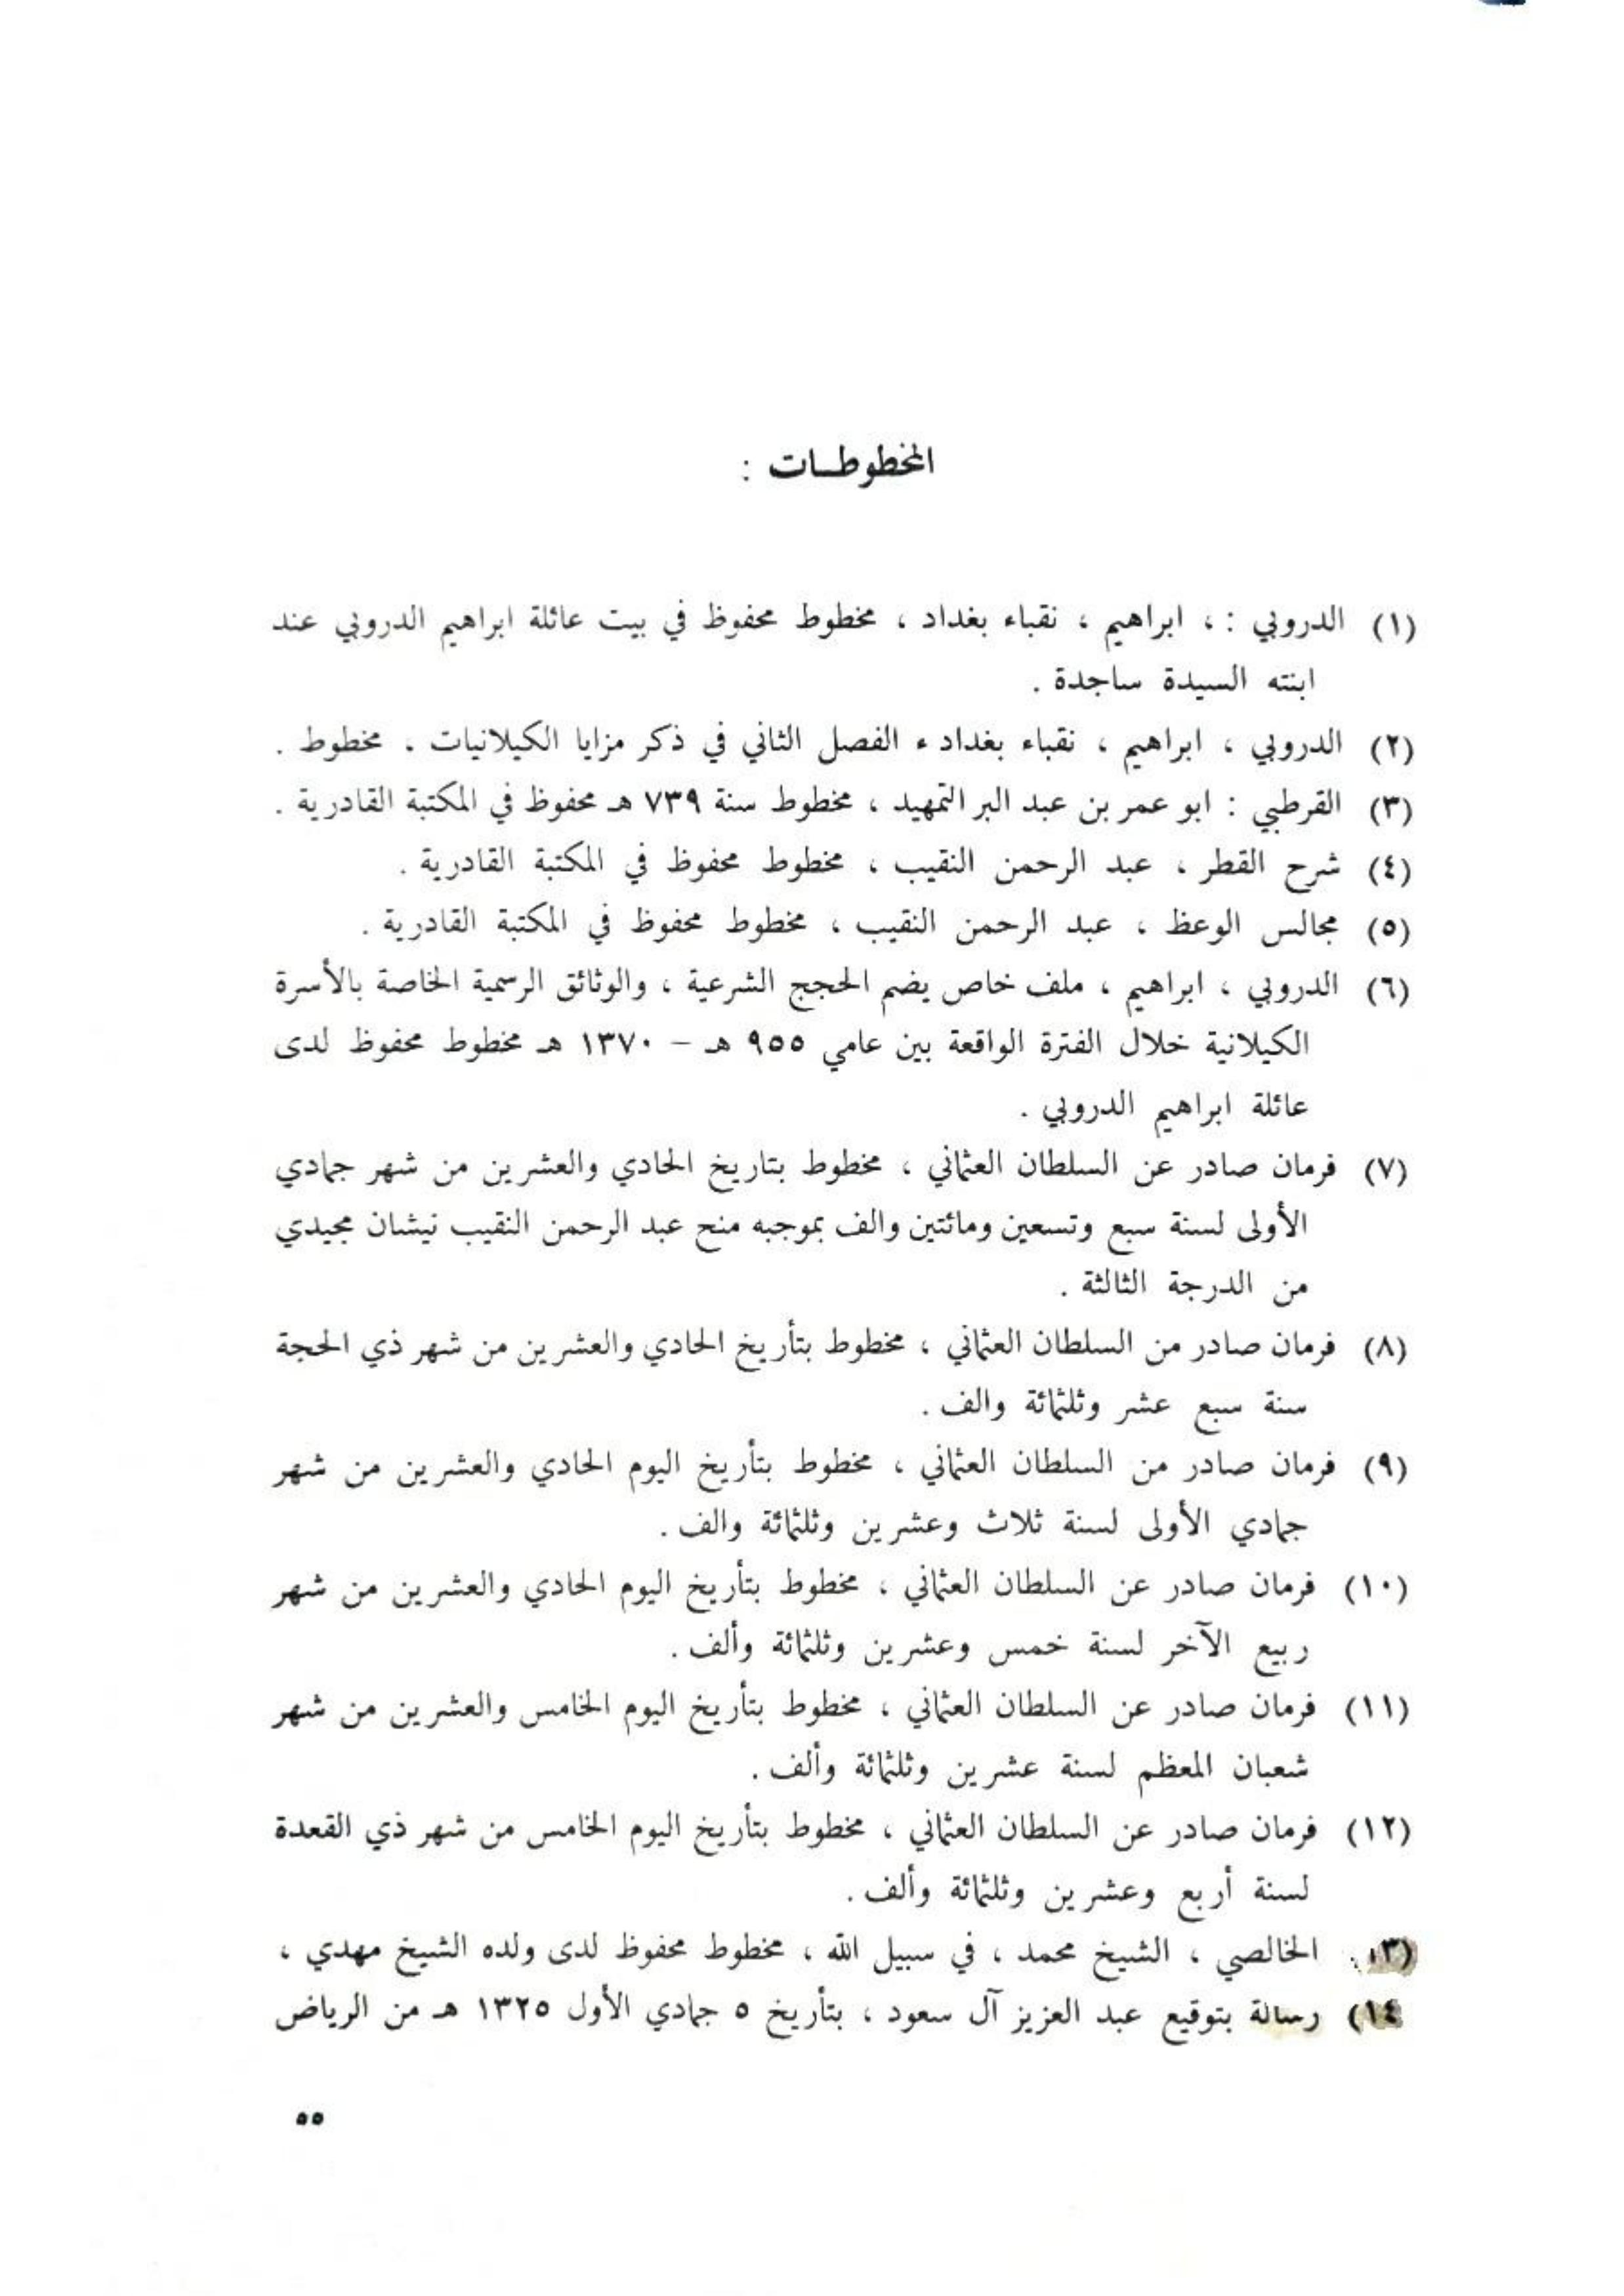 المخطوطات :
(١) الدروبي : ، ابراهيم ، نقباء بغداد ، مخطوط محفوظ في بيت عائلة ابراهيم الدروبي عند
ابنته السيدة ساجدة .
(٢) الدروبي ، ابراهيم ، نقباء بغداد ء الفصل الثاني في ذكر مزايا الكيلانيات ، مخطوط .
(٣) القرطبي : ابو عمر بن عبد البر التمهيد ، مخطوط سنة ٧٣٩ هـ محفوظ في المكتبة القادرية .
(٤) شرح القطر ، عبد الرحمن النقيب ، مخطوط محفوظ في المكتبة القادرية .
(٥) مجالس الوعظ ، عبد الرحمن النقيب ، مخطوط محفوظ في المكتبة القادرية .
(٦) الدروبي ، ابراهيم ، ملف خاص يضم الحجج الشرعية ، والوثائق الرسمية الخاصة بالأسرة
الكيلانية خلال الفترة الواقعة بين عامي ٩٥٥ هـ - ١٣٧٠ هـ مخطوط محفوظ لدى
عائلة ابراهيم الدروبي .
(٧) فرمان صادر عن السلطان العثماني ، مخطوط بتاريخ الحادي والعشرين من شهر جمادي
الأولى لسنة سبع وتسعين ومائتين والف بموجبه منح عبد الرحمن النقيب نيشان مجيدي
من الدرجة الثالثة .
(٨) فرمان صادر من السلطان العثماني ، مخطوط بتأريخ الحادي والعشرين من شهر ذي الحجة
سنة سبع عشر وثلثمائة والف .
(٩) فرمان صادر من السلطان العثماني ، مخطوط بتأريخ اليوم الحادي والعشرين من شهر
جمادي الأولى لسنة ثلاث وعشرين وثلثمائة والف .
(١٠) فرمان صادر عن السلطان العثماني ، مخطوط بتأريخ اليوم الحادي والعشرين من شهر
ربيع الآخر لسنة خمس وعشرين وثلثمائة وألف .
(١١) فرمان صادر عن السلطان العثماني ، مخطوط بتأريخ اليوم الخامس والعشرين من شهر
شعبان المعظم لسنة عشرين وثلثمائة وألف .
(١٢) فرمان صادر عن السلطان العثماني ، مخطوط بتأريخ اليوم الخامس من شهر ذي القعدة
لسنة أربع وعشرين وثلثمائة وألف .
(١٣) الخالصي ، الشيخ محمد ، في سبيل الله ، مخطوط محفوظ لدى ولده الشيخ مهدي ،
١٤) رسالة بتوقيع عبد العزيز آل سعود ، بتأريخ ٥ جمادي الأول ١٣٢٥ هـ من الرياض
٥٥